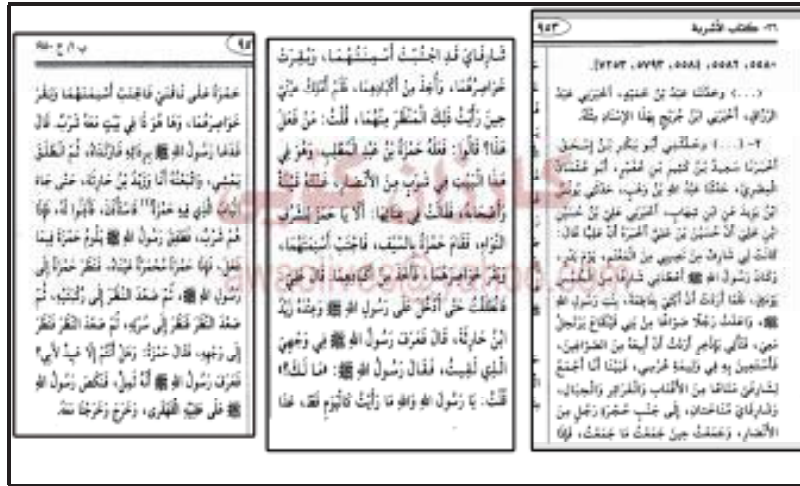 ٣٦- كتاب الأشربة
٩٥٣
٥٥٨٠، ٥٥٨٢، ٥٥٨٤، ٥٧٩٣، ٧٢٥٣].
(...) وحَدَّثَنَا عَبْدُ بْنُ حُمَيْدٍ، أَخْبَرَنِي عَبْدُ
الرَّزَّاقِ، أَخْبَرَنِي ابْنُ جُرَيْجٍ بِهَذَا الْإِسْنَادِ مِثْلَهُ.
٢- (...) وحَدَّثَنِي أَبُو بَكْرِ بْنُ إِسْحَقَ،
أَخْبَرَنَا سَعِيدُ بْنُ كَثِيرِ بْنِ عُفَيْرٍ، أَبُو عُثْمَانَ
الْمِصْرِيُّ، حَدَّثَنَا عَبْدُ اللهِ بْنُ وَهْبٍ، حَدَّثَنِي يُونُسُ
ابْنُ يَزِيدَ عَنِ ابْنِ شِهَابٍ، أَخْبَرَنِي عَلِيُّ بْنُ حُسَيْنِ
ابْنِ عَلِيٍّ أَنَّ حُسَيْنَ بْنَ عَلِيٍّ أَخْبَرَهُ أَنَّ عَلِيًّا قَالَ:
كَانَتْ لِي شَارِفٌ مِنْ نَصِيبِي مِنَ الْمَغْنَمِ، يَوْمَ بَدْرٍ،
وَكَانَ رَسُولُ اللهِ ﷺ أَعْطَانِي شَارِفًا مِنَ الْخُمُسِ
يَوْمَئِذٍ، فَلَمَّا أَرَدْتُ أَنْ أَبْتَنِيَ بِفَاطِمَةَ، بِنْتِ رَسُولِ اللهِ
ﷺ، وَاعَدْتُ رَجُلًا صَوَّاغًا مِنْ بَنِي قَيْنُقَاعَ يَرْتَحِلُ
مَعِيَ، فَنَأْتِي بِإِذْخِرٍ أَرَدْتُ أَنْ أَبِيعَهُ مِنَ الصَّوَّاغِينَ،
فَأَسْتَعِينَ بِهِ فِي وَلِيمَةِ عُرْسِي، فَبَيْنَا أَنَا أَجْمَعُ
لِشَارِفَيَّ مَتَاعًا مِنَ الْأَقْتَابِ وَالْغَرَائِرِ وَالْحِبَالِ،
وَشَارِفَايَ مُنَاخَتَانِ، إِلَى جَنْبِ حُجْرَةِ رَجُلٍ مِنَ
الْأَنْصَارِ، وَجَمَعْتُ حِينَ جَمَعْتُ مَا جَمَعْتُ، فَإِذَا
شَارِفَايَ قَدِ اجْتُبَّتْ أَسْنِمَتُهُمَا، وَبُقِرَتْ
خَوَاصِرُهُمَا، وَأُخِذَ مِنْ أَكْبَادِهِمَا، فَلَمْ أَمْلِكْ عَيْنَيَّ
حِينَ رَأَيْتُ ذَلِكَ الْمَنْظَرَ مِنْهُمَا، قُلْتُ: مَنْ فَعَلَ
هَذَا؟ قَالُوا: فَعَلَهُ حَمْزَةُ بْنُ عَبْدِ الْمُطَّلِبِ، وَهُوَ فِي
هَذَا الْبَيْتِ فِي شَرْبٍ مِنَ الْأَنْصَارِ، غَنَّتْهُ قَيْنَةٌ
وَأَصْحَابَهُ، فَقَالَتْ فِي غِنَائِهَا: أَلَا يَا حَمْزُ لِلشُّرُفِ
النِّوَاءِ، فَقَامَ حَمْزَةُ بِالسَّيْفِ، فَاجْتَبَّ أَسْنِمَتَهُمَا،
وَبَقَرَ خَوَاصِرَهُمَا، فَأَخَذَ مِنْ أَكْبَادِهِمَا. قَالَ عَلِيٌّ:
فَانْطَلَقْتُ حَتَّى أَدْخُلَ عَلَى رَسُولِ اللهِ ﷺ وَعِنْدَهُ زَيْدُ
ابْنُ حَارِثَةَ، قَالَ فَعَرَفَ رَسُولُ اللهِ ﷺ فِي وَجْهِيَ
الَّذِي لَقِيتُ، فَقَالَ رَسُولُ اللهِ ﷺ: «مَا لَكَ؟»
قُلْتُ: يَا رَسُولَ اللهِ وَاللهِ مَا رَأَيْتُ كَالْيَوْمِ قَطُّ، عَدَا
حَمْزَةُ عَلَى نَاقَتَيَّ فَاجْتَبَّ أَسْنِمَتَهُمَا وَبَقَرَ
خَوَاصِرَهُمَا، وَهَا هُوَ ذَا فِي بَيْتٍ مَعَهُ شَرْبٌ. قَالَ
فَدَعَا رَسُولُ اللهِ ﷺ بِرِدَائِهِ فَارْتَدَاهُ، ثُمَّ انْطَلَقَ
يَمْشِي، وَاتَّبَعْتُهُ أَنَا وَزَيْدُ بْنُ حَارِثَةَ، حَتَّى جَاءَ
الْبَابَ الَّذِي فِيهِ حَمْزَةُ، فَاسْتَأْذَنَ، فَأَذِنُوا لَهُ، فَإِذَا
هُمْ شَرْبٌ، فَطَفِقَ رَسُولُ اللهِ ﷺ يَلُومُ حَمْزَةَ فِيمَا
فَعَلَ، فَإِذَا حَمْزَةُ مُحْمَرَّةٌ عَيْنَاهُ، فَنَظَرَ حَمْزَةُ إِلَى
رَسُولِ اللهِ ﷺ، ثُمَّ صَعَّدَ النَّظَرَ إِلَى رُكْبَتَيْهِ، ثُمَّ
صَعَّدَ النَّظَرَ فَنَظَرَ إِلَى سُرَّتِهِ، ثُمَّ صَعَّدَ النَّظَرَ فَنَظَرَ
إِلَى وَجْهِهِ، فَقَالَ حَمْزَةُ: وَهَلْ أَنْتُمْ إِلَّا عَبِيدٌ لِأَبِي؟
فَعَرَفَ رَسُولُ اللهِ ﷺ أَنَّهُ ثَمِلٌ، فَنَكَصَ رَسُولُ اللهِ
ﷺ عَلَى عَقِبَيْهِ الْقَهْقَرَى، وَخَرَجَ وَخَرَجْنَا مَعَهُ.